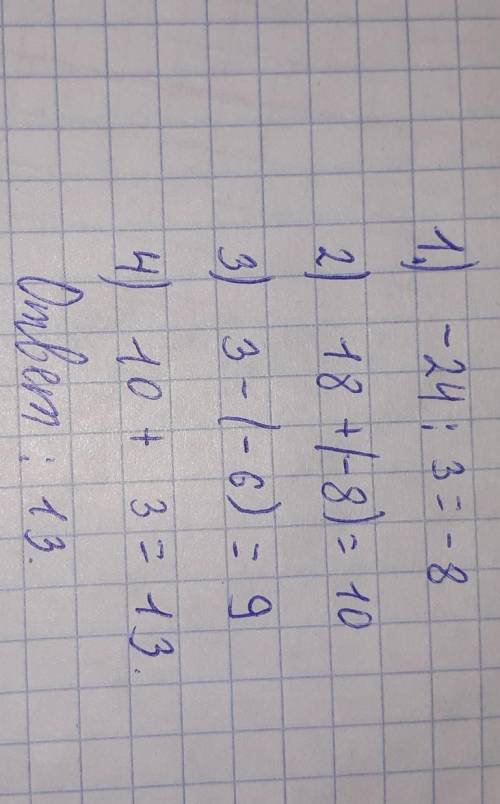 1) -24 : 3 = -8
2) 18 + (-8) = 10
3) 3 - (-6) = 9
4) 10 + 3 = 13.
Ответ : 13.